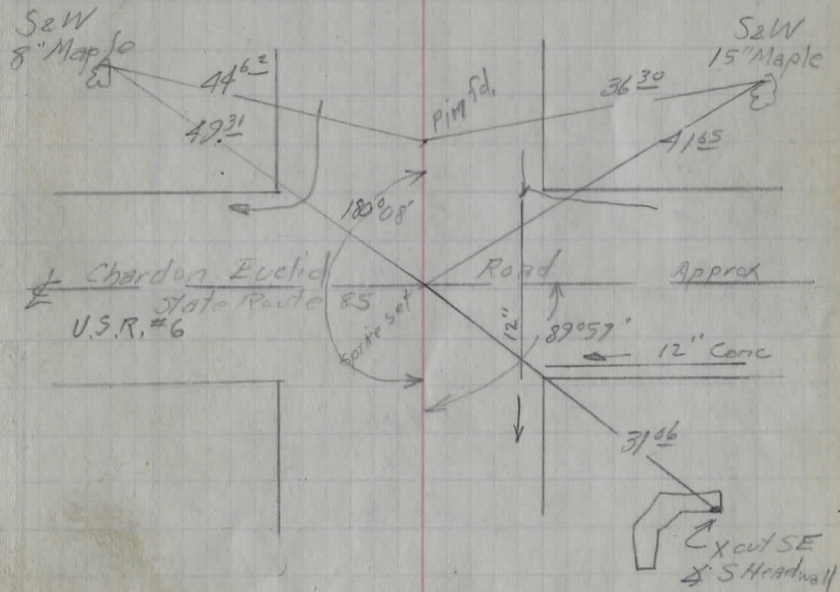 S&W
8" Maple
S&W
15" Maple
44 62
49.31
Pin fd.
36 30
41 65
180°08'
Chardon Euclid Road Approx
State Route 85
U.S.R. #6
Spike set
12"
89°59'
12" Conc
31 06
X cut SE
∡ S Headwall